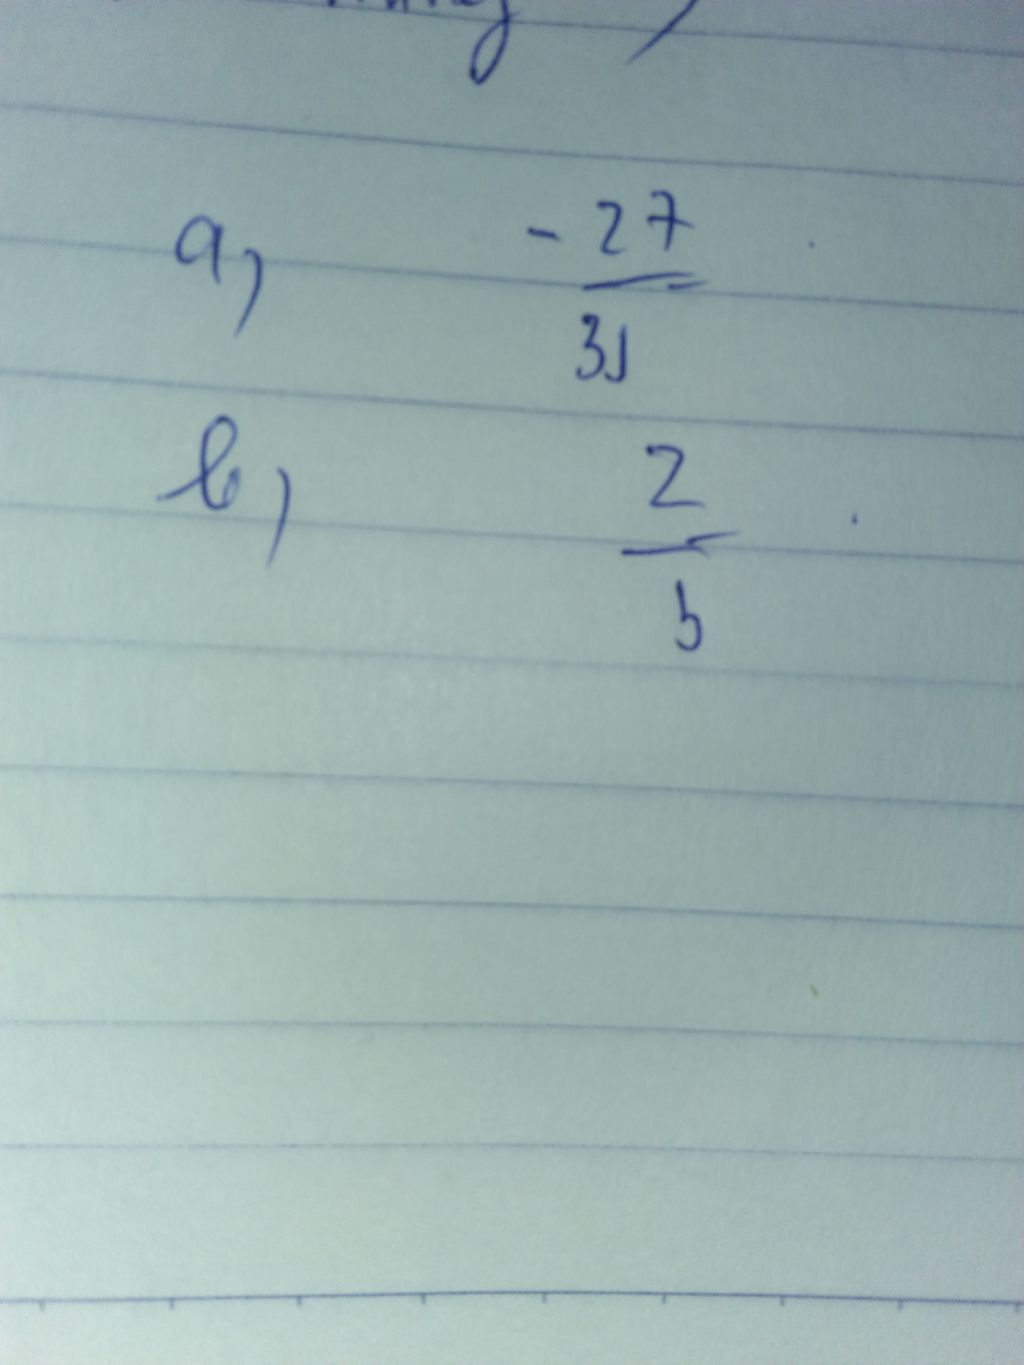 a, -27/31
b, 2/5